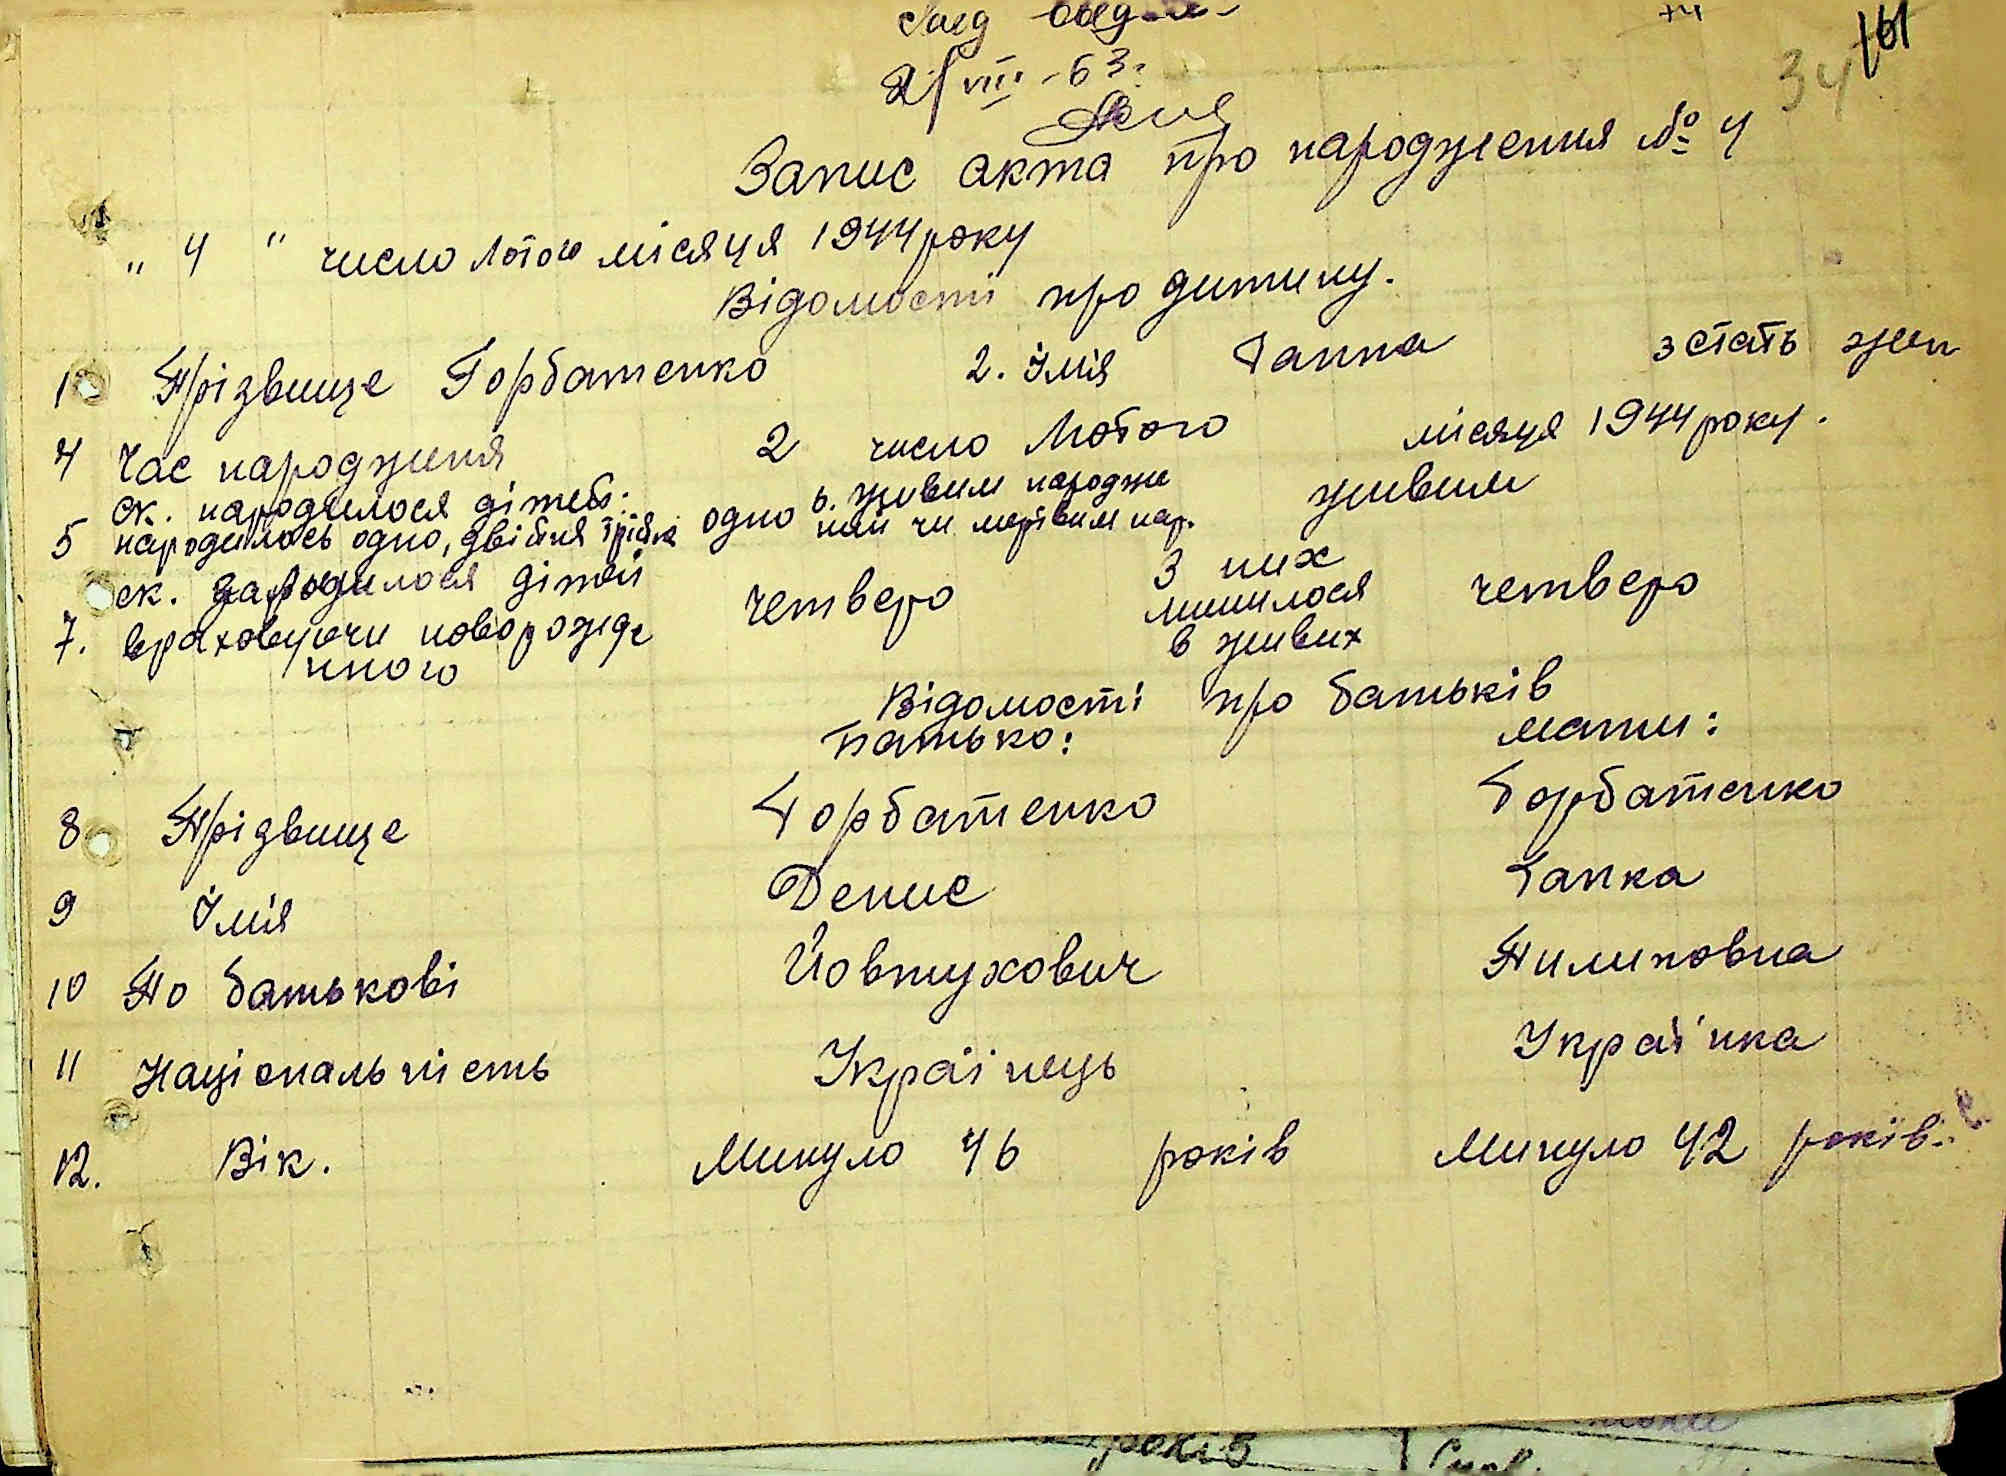 VIII - 63.
161
34
Запис акта про народження № 4
" 4 " число Лютого місяця 1944 року
Відомості про дитину.
1 Прізвище Горбатенко 2. Імія Ганна 3 стать жен
4 Час народженя 2 число Лютого місяця 1944 року.
ск. народилося дітей:
5 народилось одно, двійня трійня одно 6. живим народже
ний чи мертвим нар. живим
ск. народилося дітей четверо З них
7. враховуючи новорожде лишилося четверо
нного в живих
Відомості про батьків
Батько: мати:
8 Прізвище Горбатенко Горбатенко
9 Імія Денис Ганка
10 По батькові Йовтухович Пилиповна
11 Національність Українець Українка
12. Вік. Минуло 46 років Минуло 42 років.
років